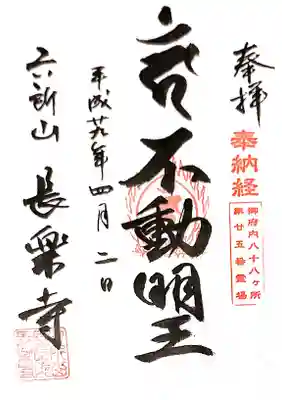 奉拝
奉納経
御府内八十八ヶ所
第廿五番霊場
不動明王
平成廿九年四月二日
六所山
長楽寺